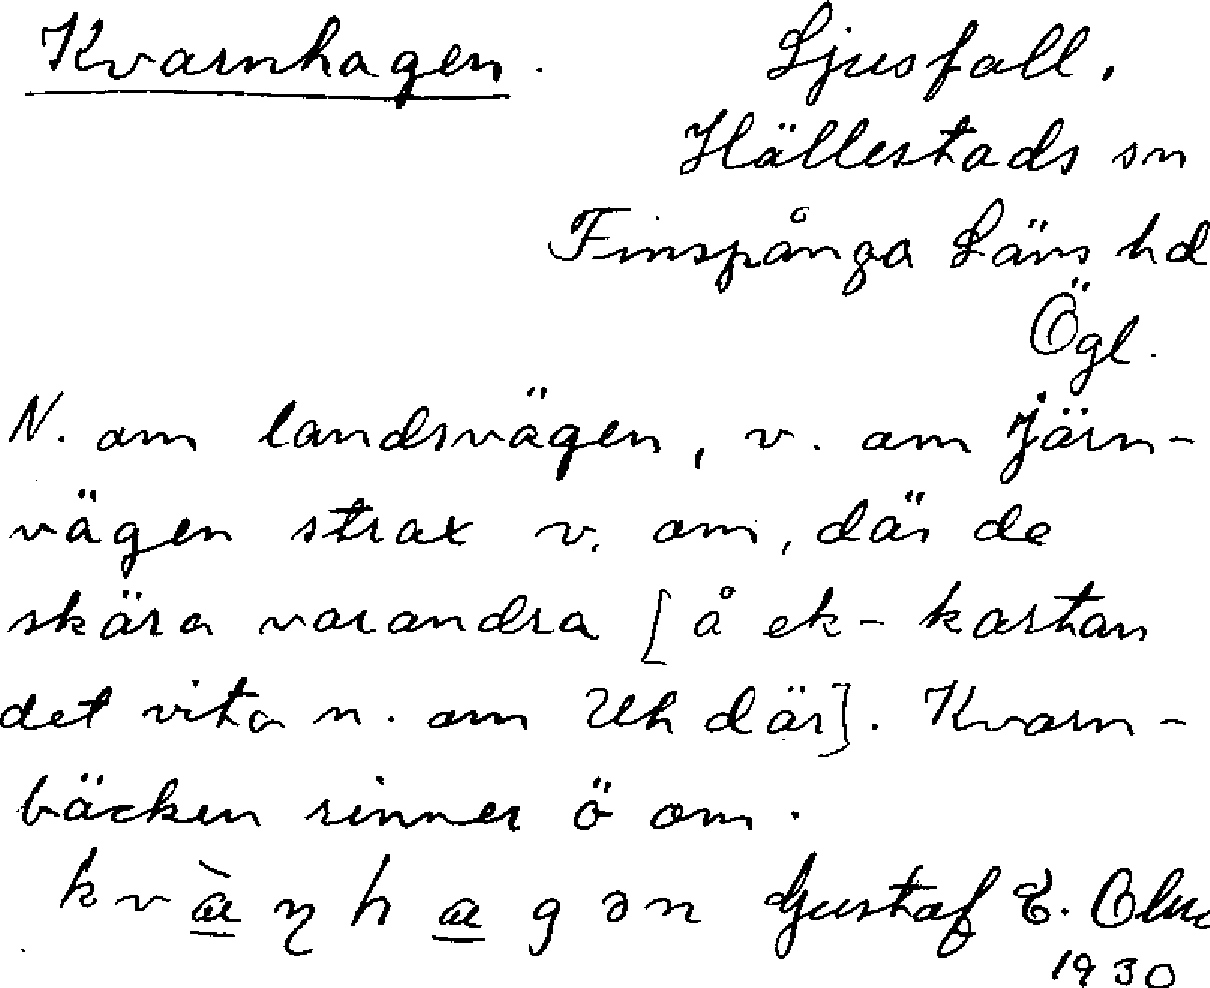 Kvarnhagen. Ljusfall,
Hällestads sn
Finspånga Läns hd
Ögl.
N. om landsvägen, v. om järn-
vägen strax v. om, där de
skära varandra [å ek-kartan
det vita n. om Uh där]. Kvarn-
bäcken rinner ö om.
kvàɳhagən Gustaf E.
1930